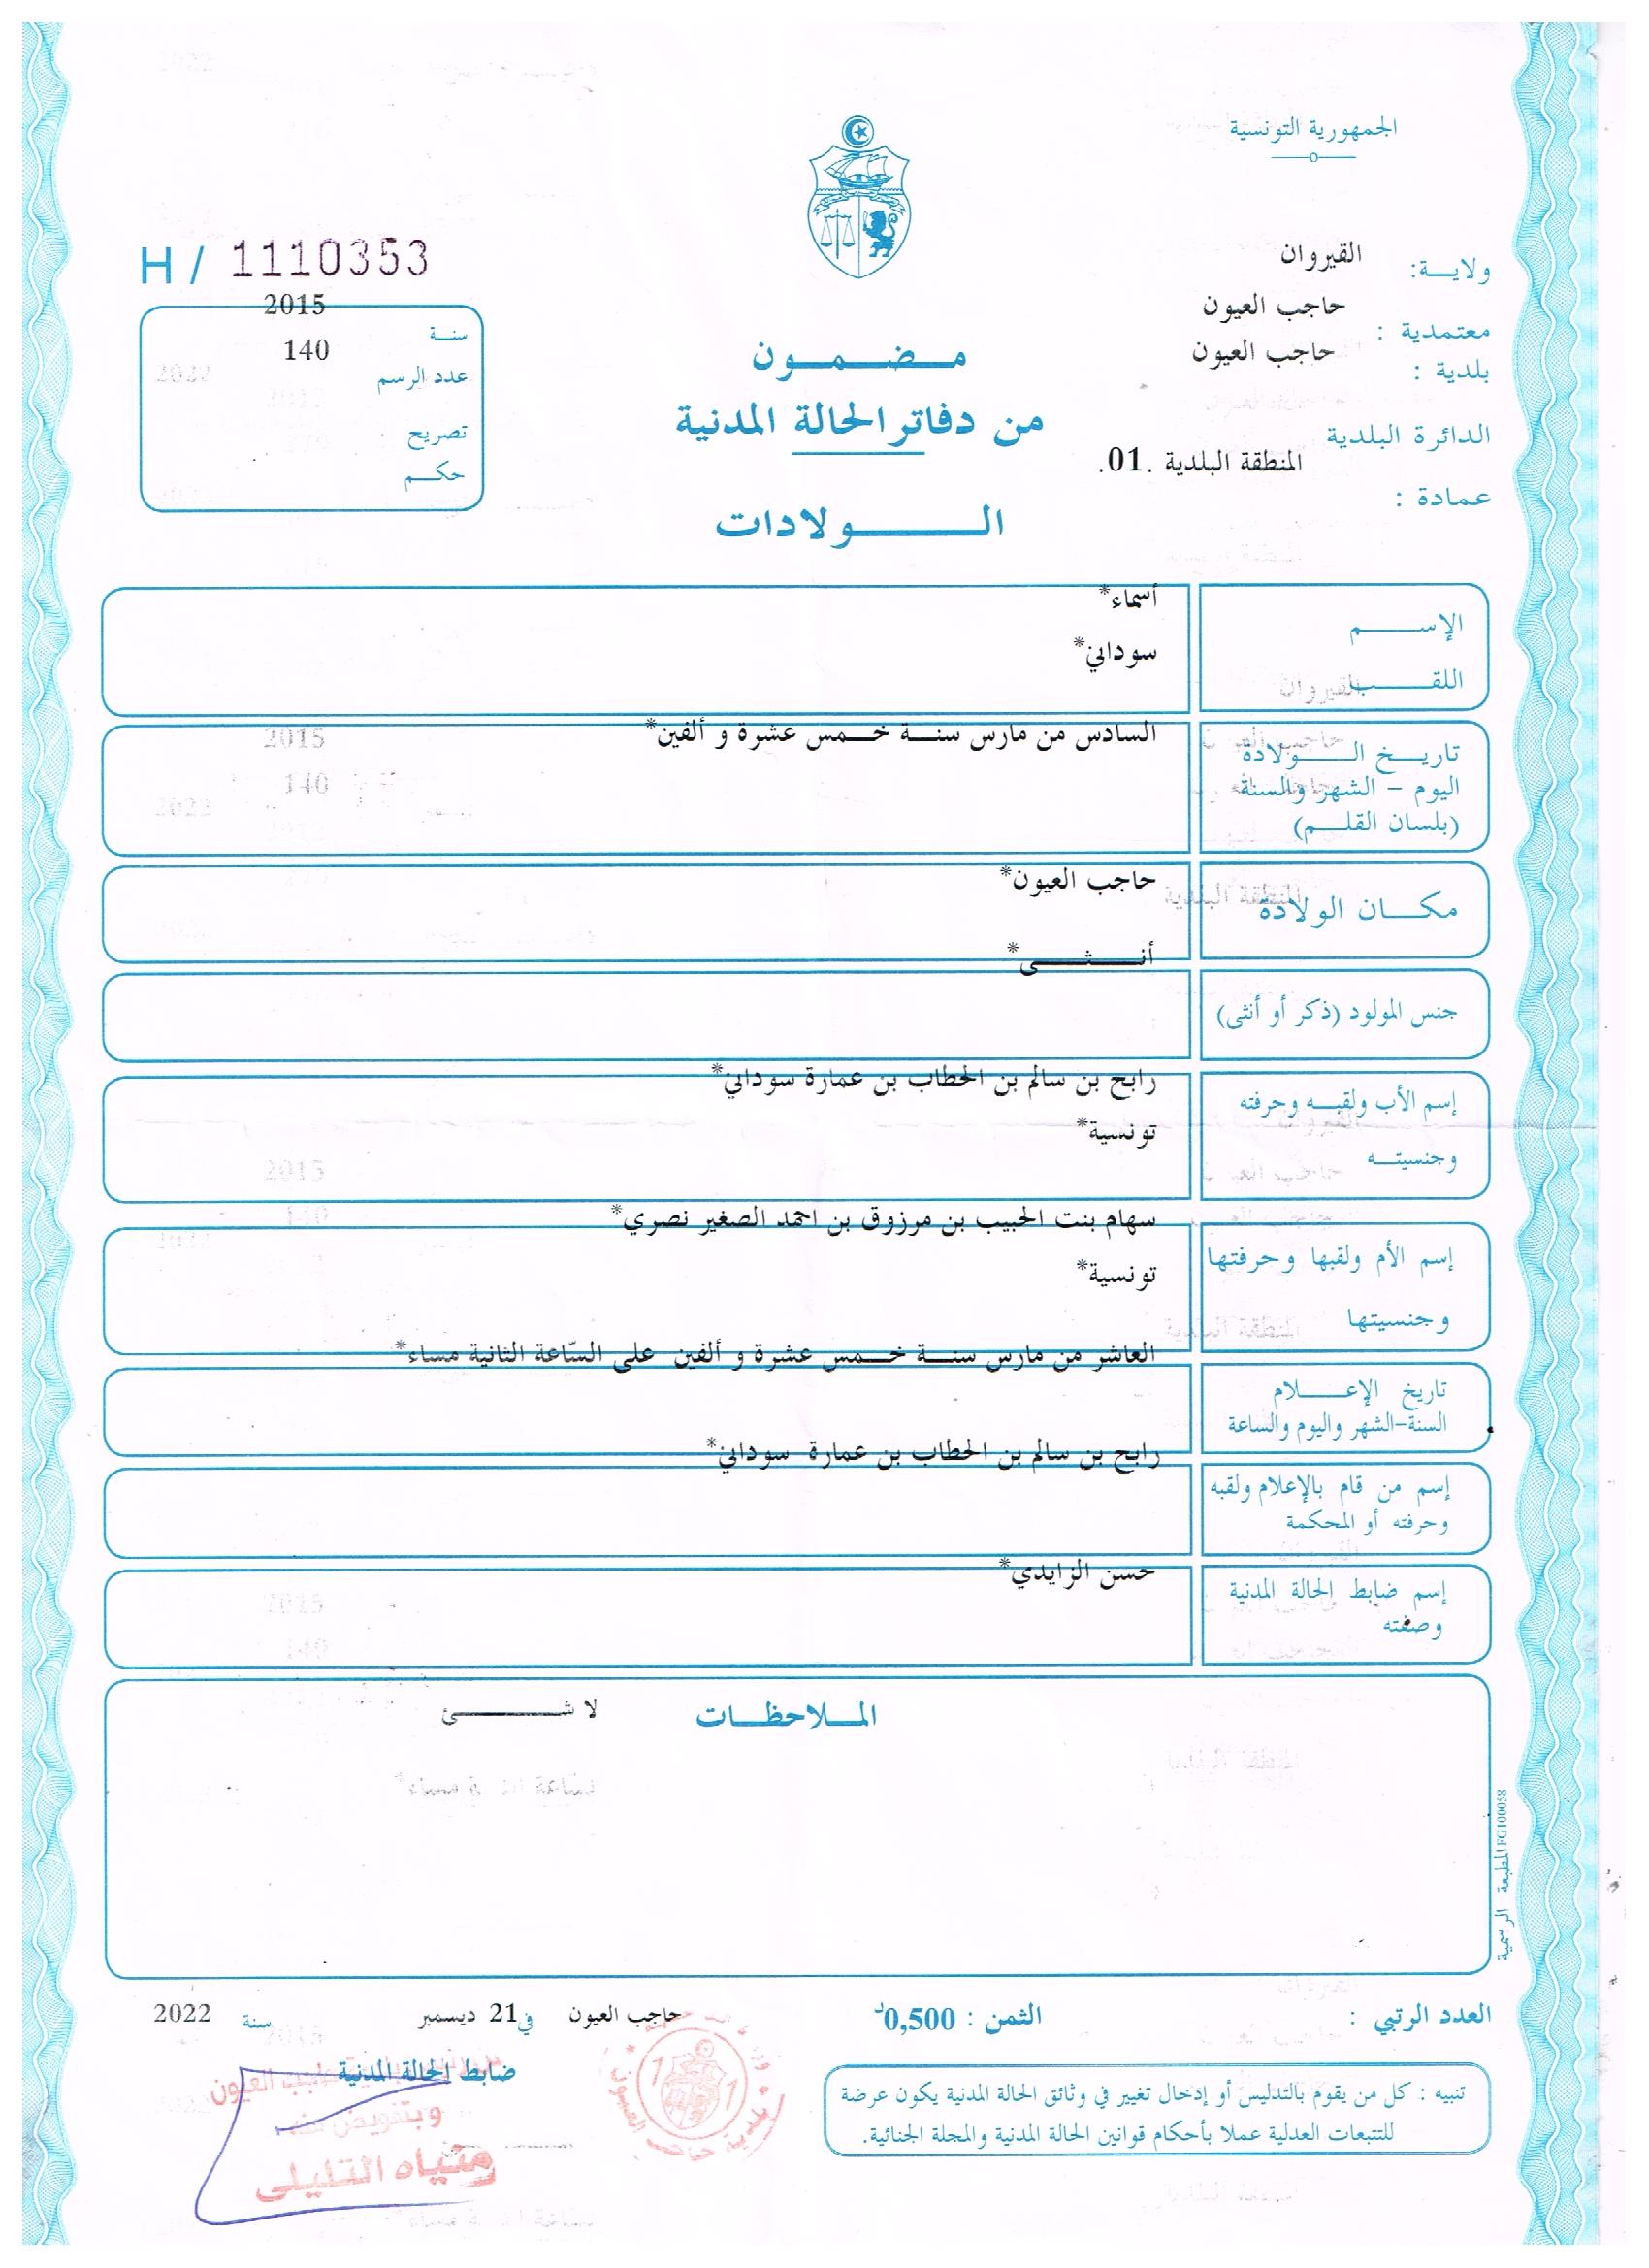 الجمهورية التونسية
ولايـــة: القيروان
معتمدية : حاجب العيون
بلدية : حاجب العيون
الدائرة البلدية
المنطقة البلدية .01.
عمادة :
H / 1110353
سنــة 2015
عدد الرسم 140
تصريح
حكــم
مــضــمــون
من دفاتر الحالة المدنية
الــــولادات
الإســـــم أسماء*
اللقـــــب سوداني*
تاريــخ الـــولادة
اليوم - الشهر والسنة
(بلسان القلــم)
السادس من مارس سنــة خــمس عشرة و ألفين*
مكـــان الولادة
حاجب العيون*
أنـــثـــى*
جنس المولود (ذكر أو أنثى)
إسم الأب ولقبــه وحرفته
وجنسيتــه
رابح بن سالم بن الحطاب بن عمارة سوداني*
تونسية*
إسم الأم ولقبها وحرفتها
وجنسيتها
سهام بنت الحبيب بن مرزوق بن احمد الصغير نصري*
تونسية*
تاريخ الإعـــــلام
السنة-الشهر واليوم والساعة
العاشر من مارس سنــة خــمس عشرة و ألفين على السّاعة الثانية مساء*
إسم من قام بالإعلام ولقبه
وحرفته أو المحكمة
رابح بن سالم بن الحطاب بن عمارة سوداني*
إسم ضابط الحالة المدنية
وصفته
حسن الزايدي*
المــلاحظــات
لا شـــــــئ
المطبعة الرسمية FG100058
العدد الرتبي :
الثمن : 0,500د
حاجب العيون في 21 ديسمبر سنة 2022
ضابط الحالة المدنية
وبتفويض منه
تنبيه : كل من يقوم بالتدليس أو إدخال تغيير في وثائق الحالة المدنية يكون عرضة
للتتبعات العدلية عملا بأحكام قوانين الحالة المدنية والمجلة الجنائية.
بلدية حاجب العيون